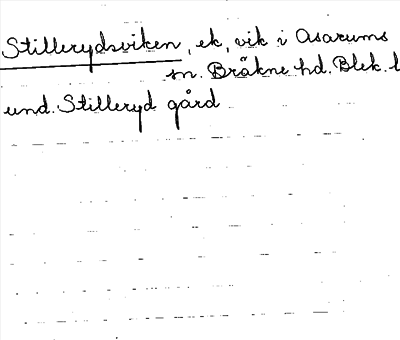 Stillerydsviken, ek, vik i Asarums
sn. Bräkne hd. Blek. l
und. Stilleryd gård